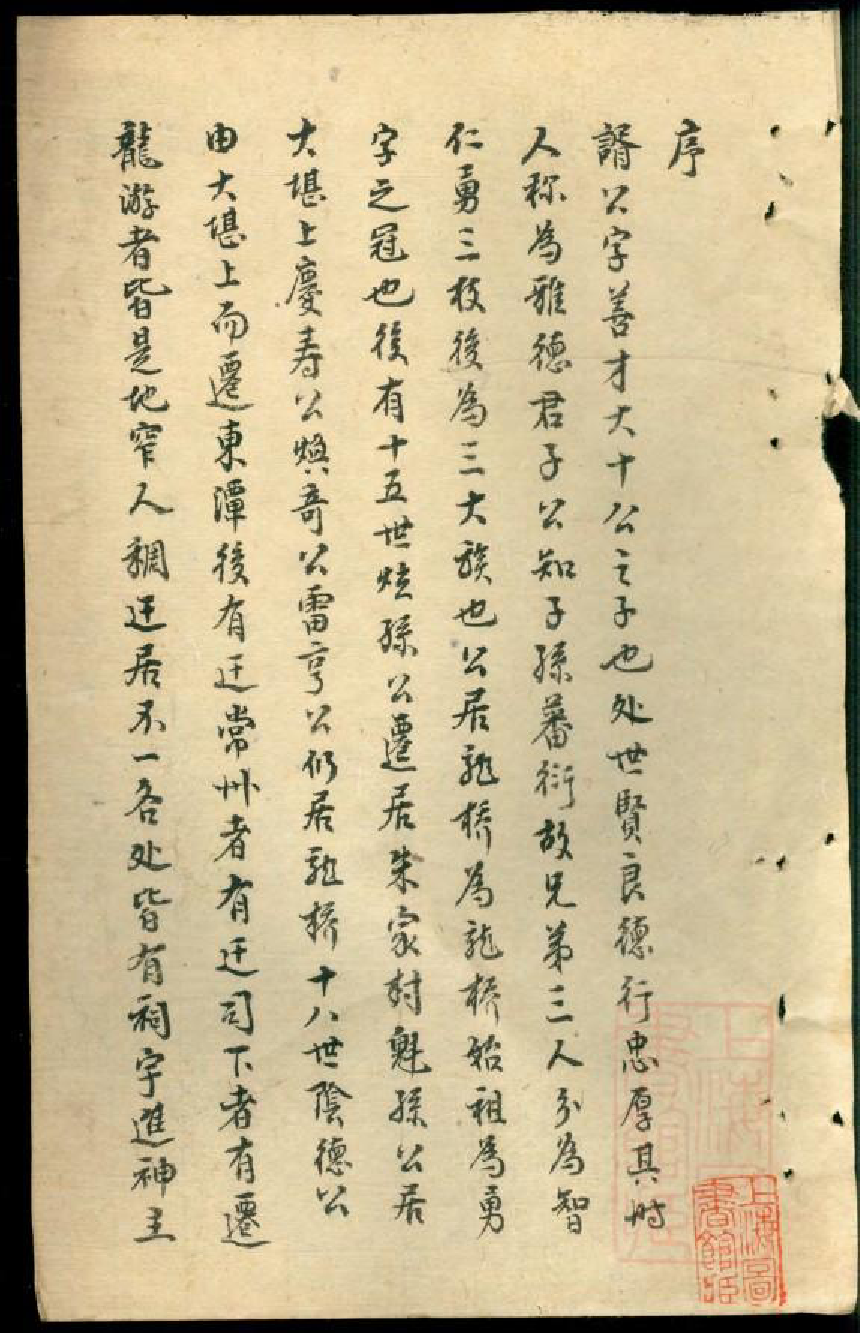 序
諝公字善才大十公之子也处世賢良德行忠厚其时
人称為雅德君子公知子孫蕃衍故兄弟三人分為智
仁勇三枝後為三大族也公居龍桥為龍桥始祖為勇
字之冠也後有十五世烓孫公遷居朱家村魁孫公居
大堪上慶寿公焕奇公雷亨公仍居龍桥十八世陰德公
由大堪上而遷東潭後有迁常州者有迁司下者有遷
龍游者皆是地窄人稠迁居不一各处皆有祠宇進神主
上海圖書館藏